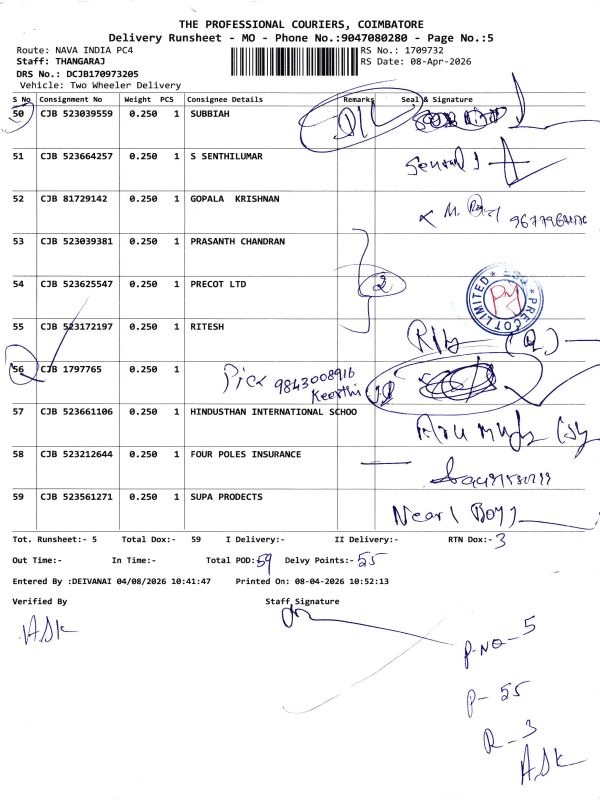 THE PROFESSIONAL COURIERS, COIMBATORE
Delivery Runsheet - MO - Phone No.:9047080280 - Page No.:5
Route: NAVA INDIA PC4
RS No.: 1709732
Staff: THANGARAJ
RS Date: 08-Apr-2026
DRS No.: DCJB170973205
Vehicle: Two Wheeler Delivery
S No Consignment No Weight PCS Consignee Details Remarks Seal & Signature
50 CJB 523039559 0.250 1 SUBBIAH
51 CJB 523664257 0.250 1 S SENTHILUMAR
52 CJB 81729142 0.250 1 GOPALA KRISHNAN
53 CJB 523039381 0.250 1 PRASANTH CHANDRAN
54 CJB 523625547 0.250 1 PRECOT LTD 2
PRECOT LIMITED
55 CJB 523172197 0.250 1 RITESH
56 CJB 1797765 0.250 1
9843008916
Keerthi
57 CJB 523661106 0.250 1 HINDUSTHAN INTERNATIONAL SCHOO
58 CJB 523212644 0.250 1 FOUR POLES INSURANCE
59 CJB 523561271 0.250 1 SUPA PRODECTS
Tot. Runsheet:- 5 Total Dox:- 59 I Delivery:- II Delivery:- RTN Dox:- 3
Out Time:- In Time:- Total POD: 59 Delvy Points:- 55
Entered By :DEIVANAI 04/08/2026 10:41:47 Printed On: 08-04-2026 10:52:13
Verified By Staff Signature
ASK
P.NO - 5
P - 55
R - 3
ASK